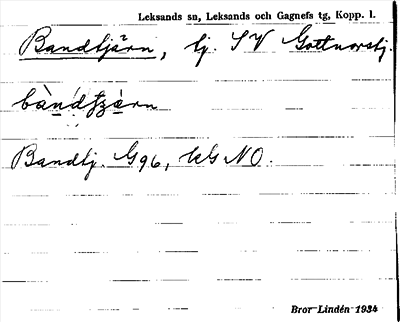 Leksands sn, Leksands och Gagnefs tg, Kopp. l.
Bandtjärn, tj. SV Gottnorstj.
bàndtjä̀rn
Bandtj. G96, kG NO.
Bror Lindén 1934